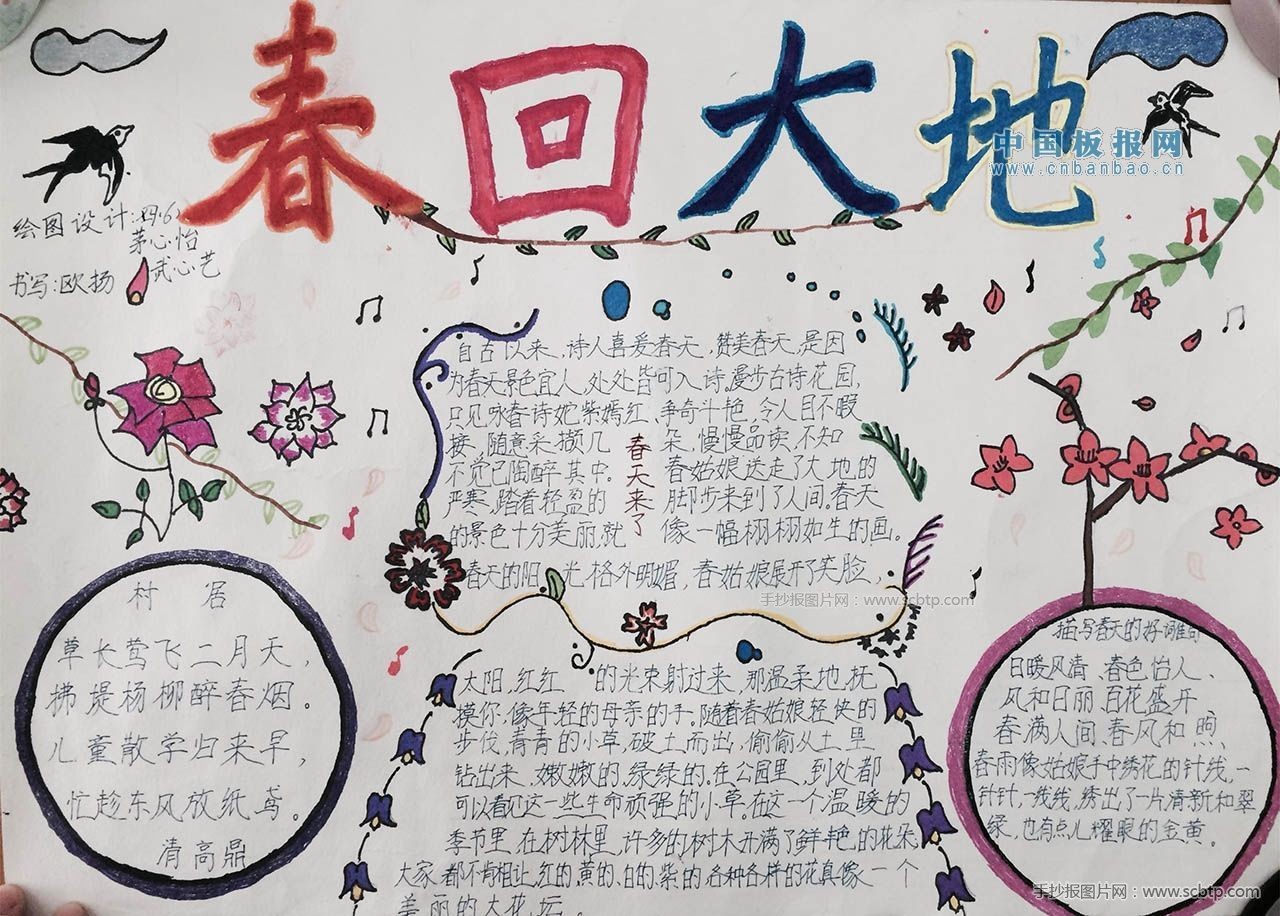 春回大地
中国板报网
www.cnbanbao.cn
绘图设计:四.6
茅心怡
武心艺
书写:欧扬
自古以来,诗人喜爱春天,赞美春天,是因
为春天景色宜人,处处皆可入诗。漫步古诗花园,
只见咏春诗姹紫嫣红、争奇斗艳,令人目不暇
接,随意采撷几朵,慢慢品读,不知
不觉已陶醉其中。春姑娘送走了大地的
严寒,踏着轻盈的脚步来到了人间。春天
的景色十分美丽,就像一幅栩栩如生的画。
春天来了
春天的阳光,格外明媚,春姑娘展开了笑脸,
手抄报图片网:www.scbtp.com
太阳,红红的光束射过来,那温柔地,抚
摸你.像年轻的母亲的手。随着春姑娘轻快的
步伐,青青的小草,破土而出,偷偷从土里
钻出来、嫩嫩的,绿绿的。在公园里,到处都
可以看见这一些生命顽强的小草。在这一个温暖的
季节里,在树林里,许多的树木开满了鲜艳的花朵,
大家都不肯相让,红的、黄的、白的、紫的各种各样的花真像一个
美丽的大花坛。
村居
草长莺飞二月天,
拂堤杨柳醉春烟。
儿童散学归来早,
忙趁东风放纸鸢。
清高鼎
描写春天的好词佳句
日暖风清、春色怡人、
风和日丽、百花盛开、
春满人间、春风和煦、
春雨像姑娘手中绣花的针线,一
针针,一线线,绣出了一片清新和翠
绿,也有点儿耀眼的金黄。
手抄报图片网:www.scbtp.com